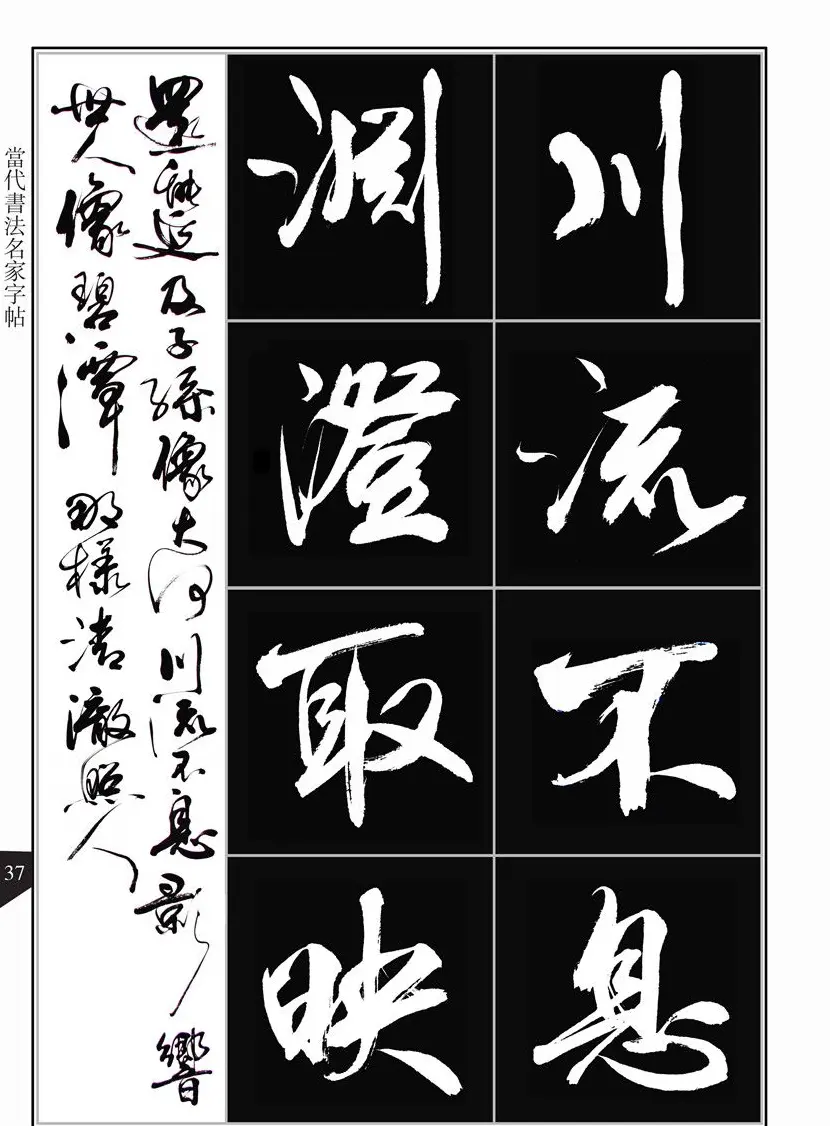 川流不息
淵澄取映
還能延及子孫像大河川流不息影響
世人像碧潭那樣清澈照人
當代書法名家字帖
37